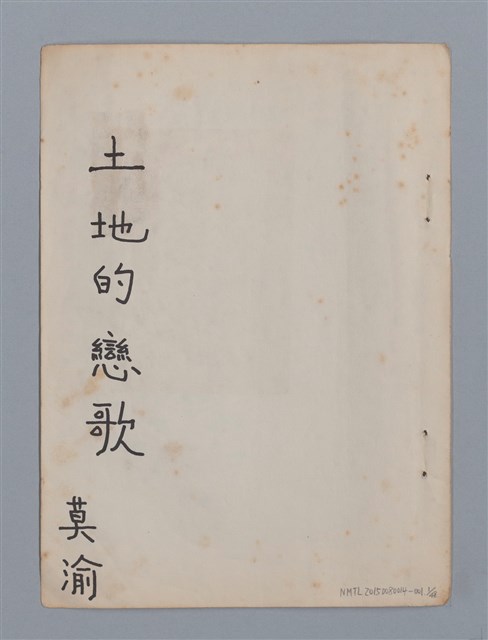 土地的戀歌
莫渝
NMTL20150080014-001